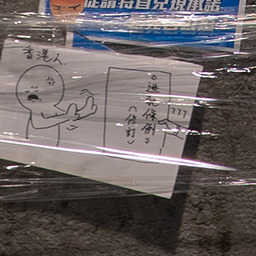 促請特首兌現承諾
香港人
《逃犯條例》
(修訂)
???